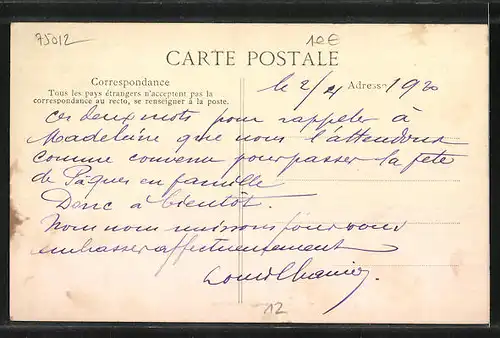 75012
10€
CARTE POSTALE
Correspondance
Tous les pays étrangers n'acceptent pas la
correspondance au recto, se renseigner à la poste.
Adresse
le 2/4 1920
ces deux mots pour rappeler à
Madeleine que nous l'attendons
comme convenu pour passer la fête
de Pâques en famille
Donc à bientôt.
Nous nous unissons pour vous
embrasser affectueusement
12